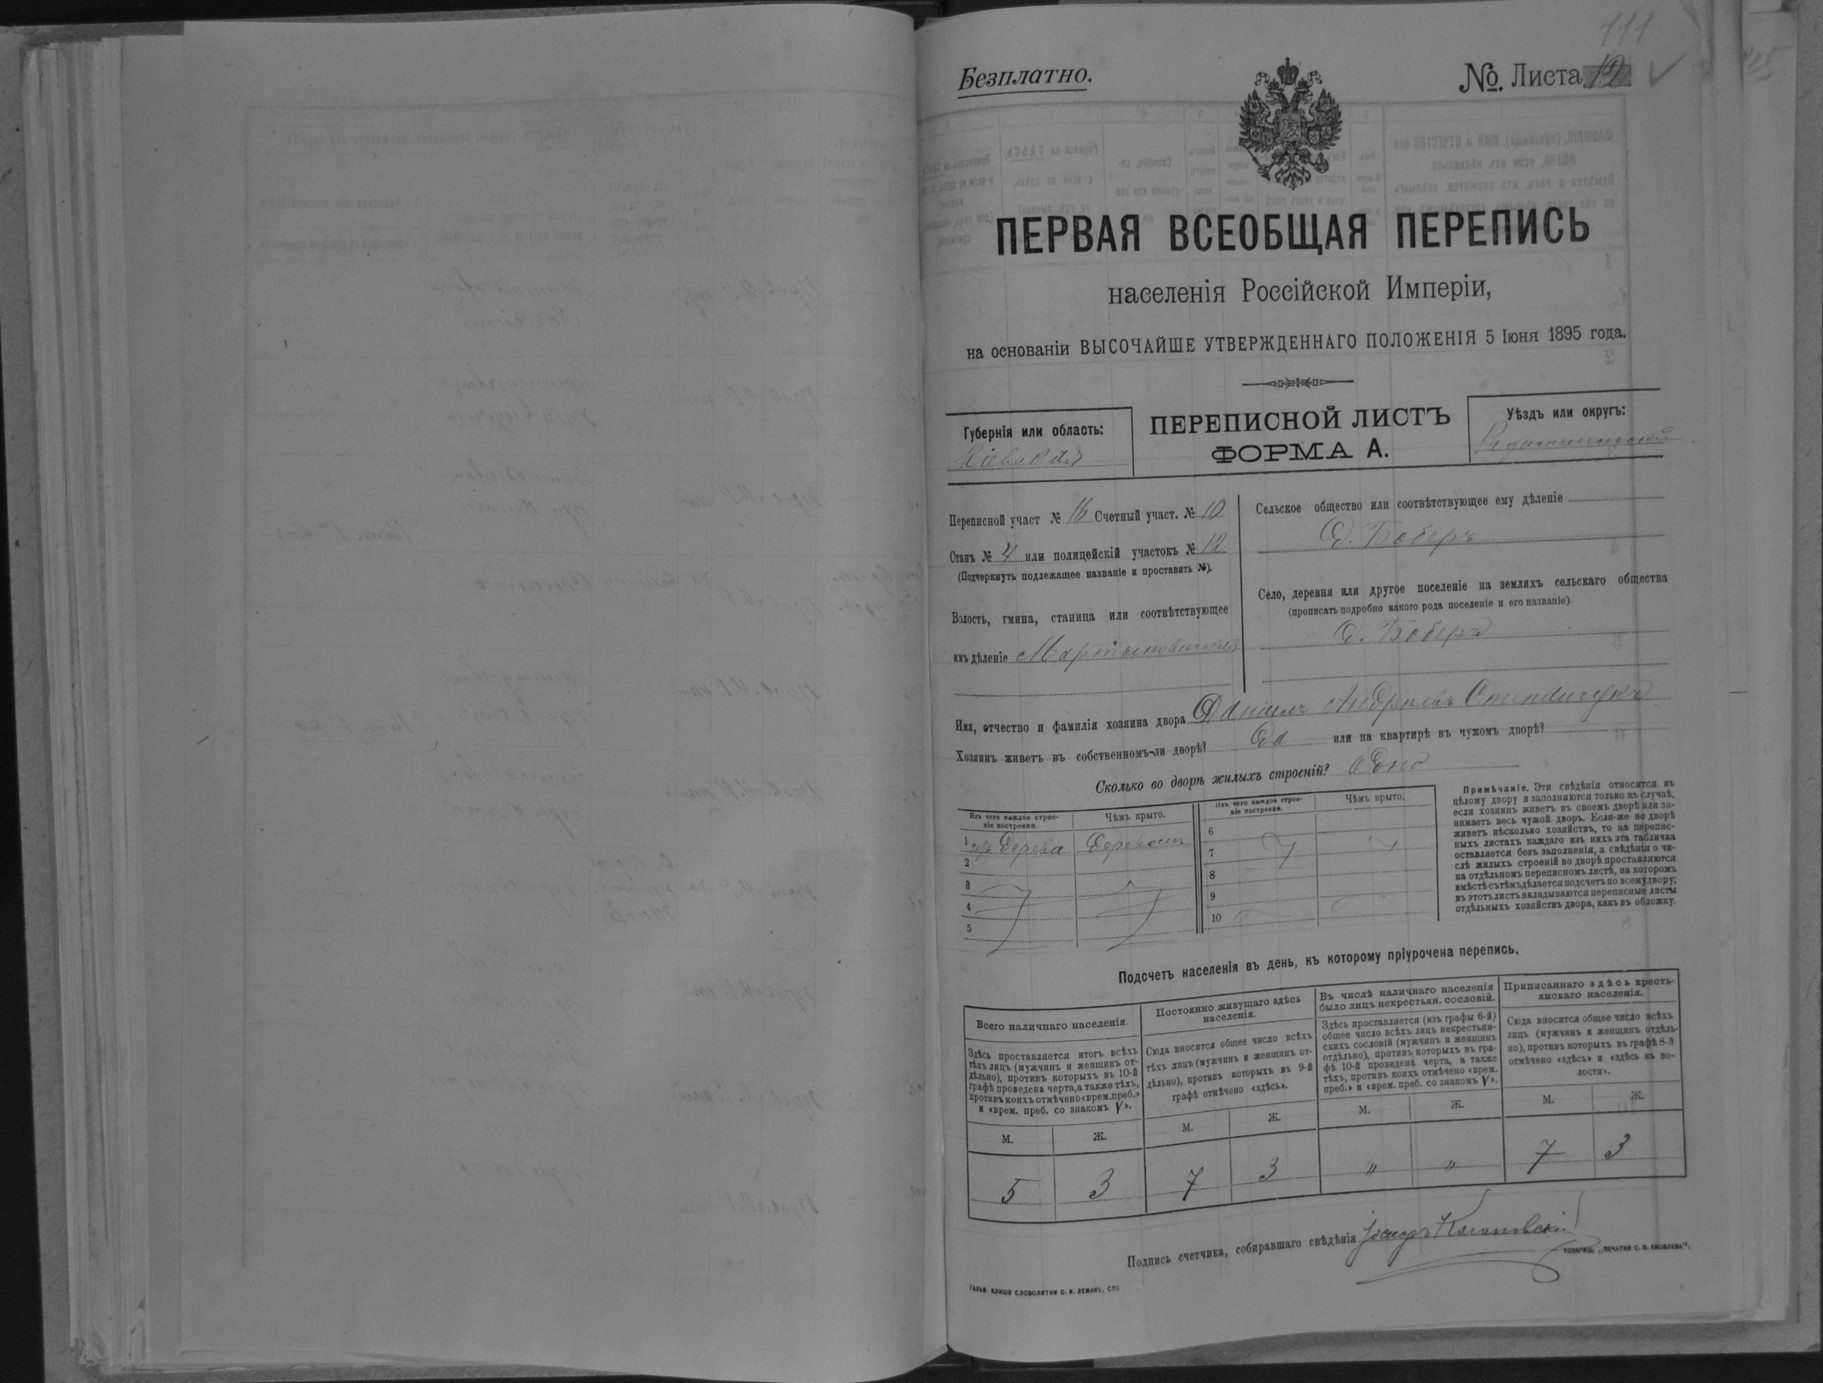 111
Безплатно.
№. Листа 12
ПЕРВАЯ ВСЕОБЩАЯ ПЕРЕПИСЬ
населенія Россійской Имперіи,
на основаніи ВЫСОЧАЙШЕ УТВЕРЖДЕННАГО ПОЛОЖЕНІЯ 5 Іюня 1895 года.
Губернія или область:
Кіевская
ПЕРЕПИСНОЙ ЛИСТЪ
ФОРМА А.
Уѣздъ или округъ:
Переписной участ № 16 Счетный участ. № 10
Станъ № 4 или полицейскій участокъ № 12
(Подчеркнуть подлежащее названіе и проставить №).
Волость, гмина, станица или соотвѣтствующее
имъ дѣленіе Мартыновичская
Сельское общество или соотвѣтствующее ему дѣленіе
С. Боберъ
Село, деревня или другое поселеніе на земляхъ сельскаго общества
(прописать подробно какого рода поселеніе и его названіе).
С. Боберъ
Имя, отчество и фамилія хозяина двора Даніилъ Андреевъ
Хозяинъ живетъ въ собственномъ-ли дворѣ? Да или на квартирѣ въ чужомъ дворѣ?
Сколько во дворѣ жилыхъ строеній? Одно
Изъ чего каждое строеніе построено.
Чѣмъ крыто.
Изъ чего каждое строеніе построено.
Чѣмъ крыто.
1 изъ дерева деревомъ
2
3
4
5
6
7
8
9
10
Примѣчаніе. Эти свѣдѣнія относятся къ
цѣлому двору и заполняются только въ случаѣ,
если хозяинъ живетъ въ своемъ дворѣ или за-
нимаетъ весь чужой дворъ. Если-же во дворѣ
живетъ нѣсколько хозяйствъ, то на перепис-
ныхъ листахъ каждаго изъ нихъ эта табличка
оставляется безъ заполненія, а свѣдѣнія о чи-
слѣ жилыхъ строеній во дворѣ проставляются
на отдѣльномъ переписномъ листѣ, на которомъ
вмѣстѣ съ тѣмъ дѣлается подсчетъ по всему двору;
въ этотъ листъ вкладываются переписные листы
отдѣльныхъ хозяйствъ двора, какъ въ обложку.
Подсчетъ населенія въ день, къ которому пріурочена перепись.
Всего наличнаго населенія.
Здѣсь проставляется итогъ всѣхъ
тѣхъ лицъ (мужчинъ и женщинъ от-
дѣльно), противъ которыхъ въ 10-й
графѣ проведена черта, а также тѣхъ,
противъ коихъ отмѣчено «врем. преб.»
и «врем. преб. со знакомъ V».
Постоянно живущаго здѣсь
населенія.
Сюда вносится общее число всѣхъ
тѣхъ лицъ (мужчинъ и женщинъ от-
дѣльно), противъ которыхъ въ 9-й
графѣ отмѣчено «здѣсь».
Въ числѣ наличнаго населенія
было лицъ некрестьян. сословій.
Здѣсь проставляется (изъ графы 6-й)
общее число всѣхъ лицъ некрестьян-
скихъ сословій (мужчинъ и женщинъ
отдѣльно), противъ которыхъ въ гра-
фѣ 10-й проведена черта, а также
тѣхъ, противъ коихъ отмѣчено «врем.
преб.» и «врем. преб. со знакомъ V».
Приписаннаго здѣсь кресть-
янскаго населенія.
Сюда вносится общее число всѣхъ
лицъ (мужчинъ и женщинъ отдѣль-
но), противъ которыхъ въ графѣ 8-й
отмѣчено «здѣсь» и «здѣсь въ во-
лости».
М. Ж. М. Ж. М. Ж. М. Ж.
5 3 7 3 " " 7 3
Подпись счетчика, собиравшаго свѣдѣнія
ГАЛЬВ. КЛИШЕ СЛОВОЛИТНИ О. И. ЛЕМАНЪ, СПБ
ТОВАРИЩ. „ПЕЧАТНИ С. П. ЯКОВЛЕВА".